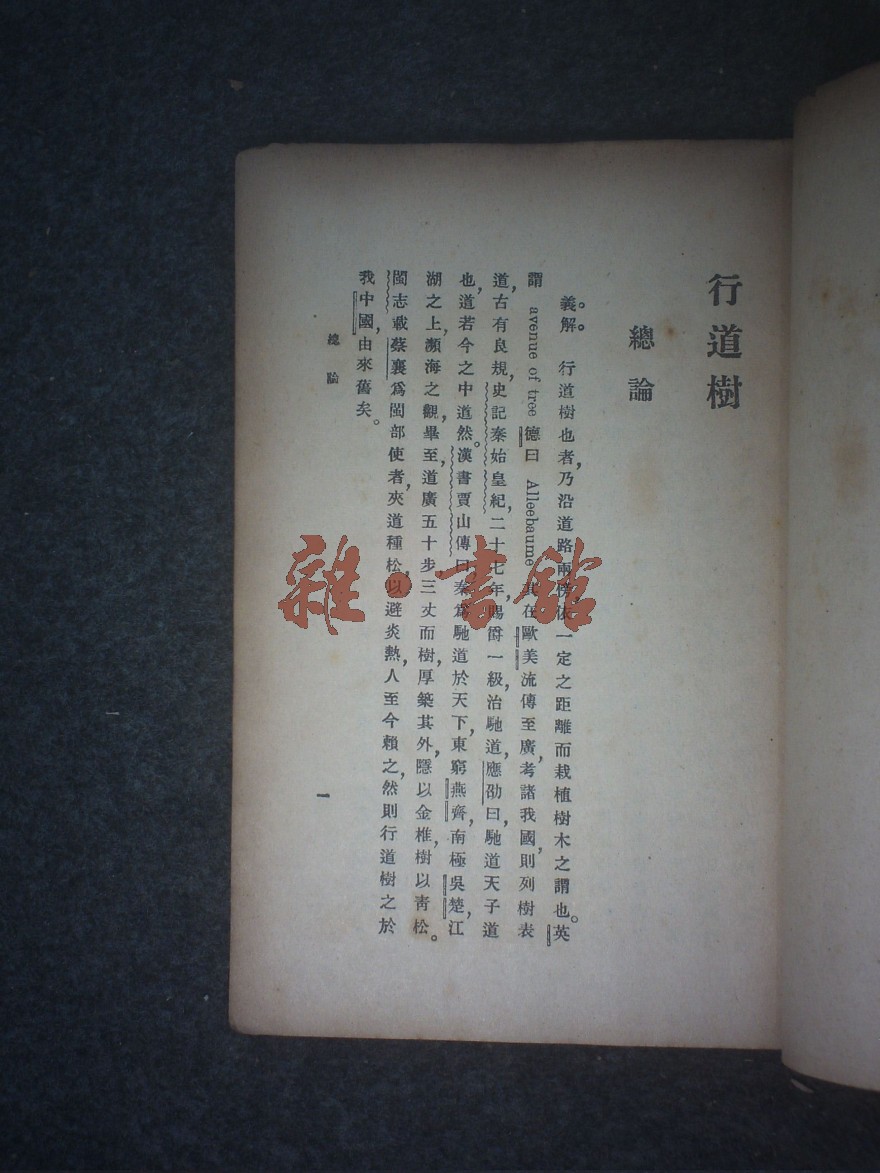 行道樹
總論
義解。 行道樹也者，乃沿道路兩傍，依一定之距離而栽植樹木之謂也。英
謂 avenue of tree 德曰 Alleebaume 其在歐美流傳至廣，考諸我國，則列樹表
道，古有良規，史記秦始皇紀，二十七年，賜爵一級，治馳道，應劭曰，馳道天子道
也，道若今之中道然。漢書賈山傳曰秦爲馳道於天下，東窮燕齊，南極吳楚，江
湖之上，瀕海之觀，畢至，道廣五十步，三丈而樹，厚築其外，隱以金椎，樹以靑松。
閩志載蔡襄爲閩部使者，夾道種松，以避炎熱，人至今賴之，然則行道樹之於
我中國，由來舊矣。
總論
一
雜·書館